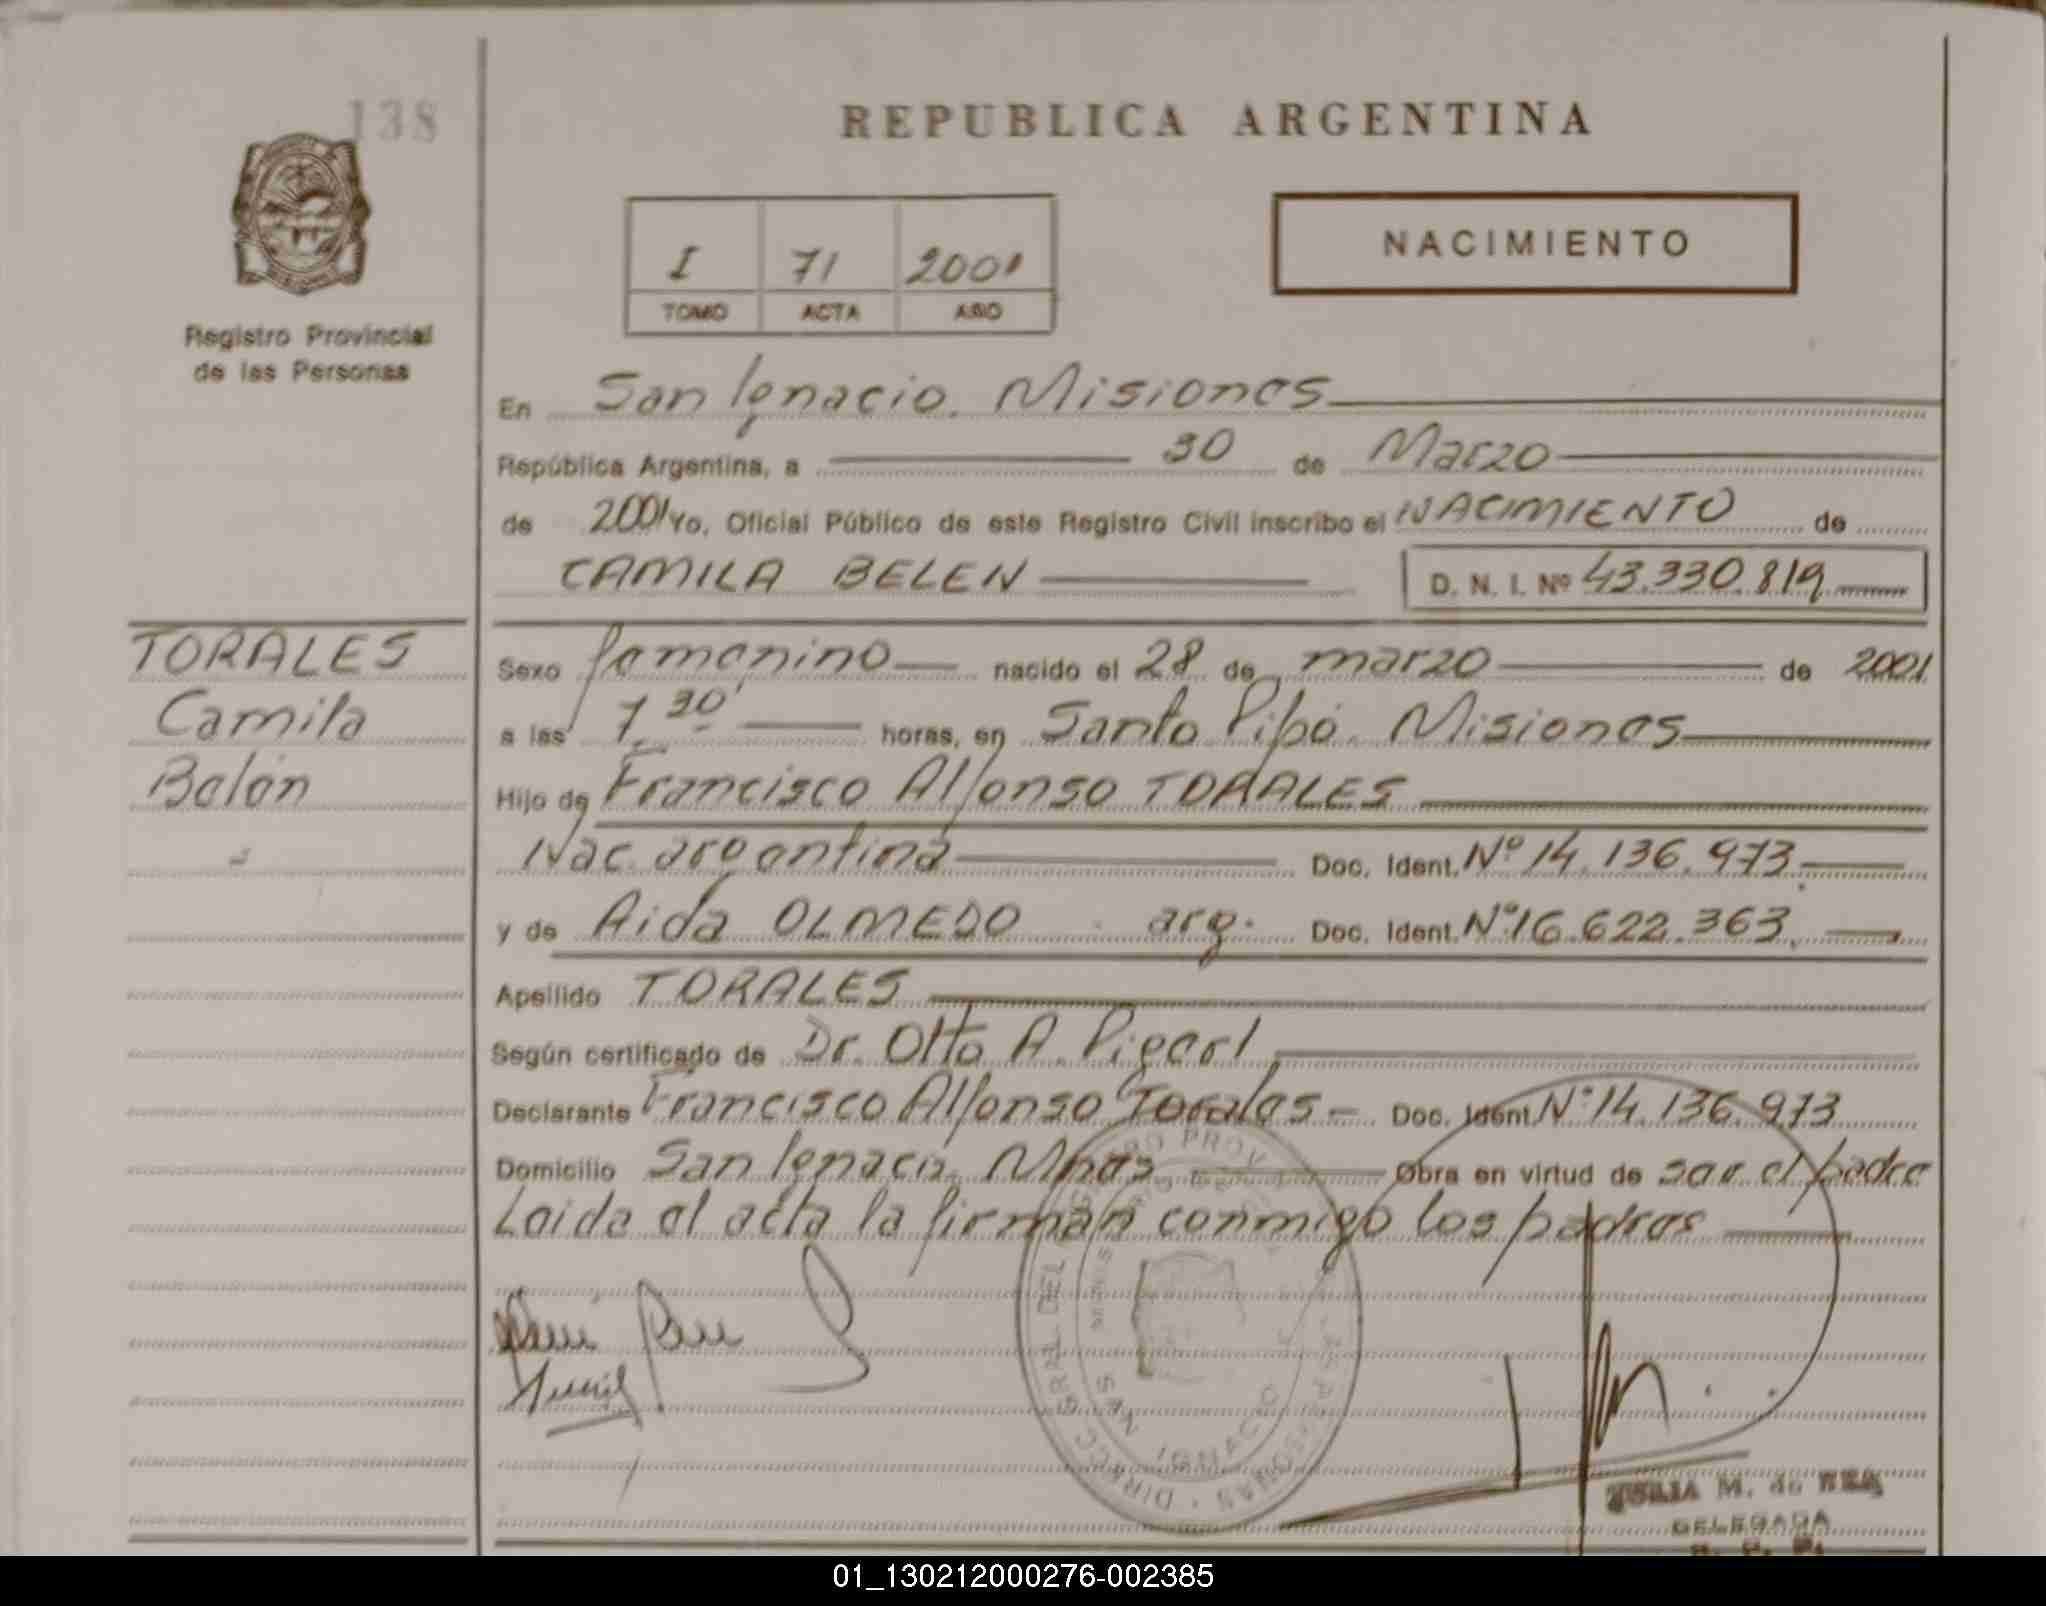 138
REPUBLICA ARGENTINA
I 71 2001
TOMO ACTA AÑO
NACIMIENTO
Registro Provincial
de las Personas
En San Ignacio. Misiones
República Argentina, a 30 de Marzo
de 2001 Yo, Oficial Público de este Registro Civil inscribo el NACIMIENTO de
CAMILA BELEN D. N. I. Nº 43.330.819
TORALES
Camila
Belén
Sexo femenino nacido el 28 de marzo de 2001
a las 7 30' horas, en Santo Pipó. Misiones
Hijo de Francisco Alfonso TORALES
Nac. argentina Doc. Ident. Nº 14.136.973
y de Aida OLMEDO arg. Doc. Ident. Nº 16.622.363.
Apellido TORALES
Según certificado de Dr. Otto A.
Declarante Francisco Alfonso Torales Doc. Ident. Nº 14.136.973
Domicilio San Ignacio, Mnes Obra en virtud de ser el padre
Leida el acta la firman conmigo los padres
JULIA M. de REA
DELEGADA
R. P. P.
01_130212000276-002385